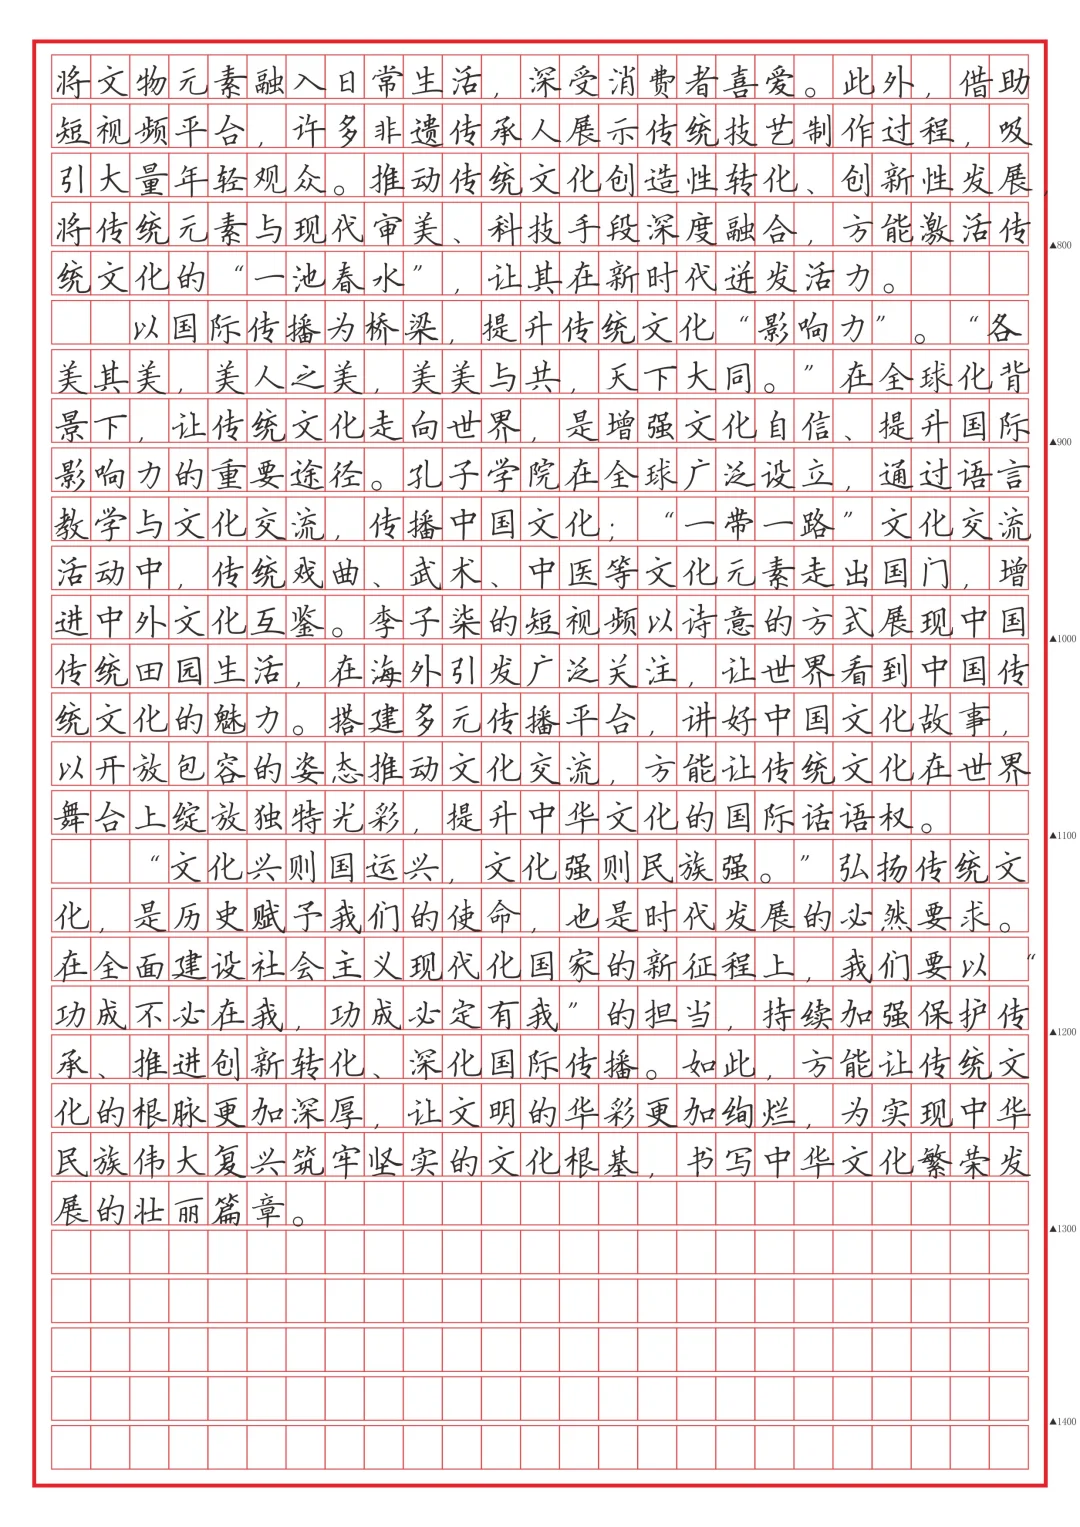 将文物元素融入日常生活，深受消费者喜爱。此外，借助
短视频平台，许多非遗传承人展示传统技艺制作过程，吸
引大量年轻观众。推动传统文化创造性转化、创新性发展，
将传统元素与现代审美、科技手段深度融合，方能激活传
▲800
统文化的“一池春水”，让其在新时代迸发活力。
以国际传播为桥梁，提升传统文化“影响力”。“各
美其美，美人之美，美美与共，天下大同。”在全球化背
景下，让传统文化走向世界，是增强文化自信、提升国际
▲900
影响力的重要途径。孔子学院在全球广泛设立，通过语言
教学与文化交流，传播中国文化；“一带一路”文化交流
活动中，传统戏曲、武术、中医等文化元素走出国门，增
进中外文化互鉴。李子柒的短视频以诗意的方式展现中国
▲1000
传统田园生活，在海外引发广泛关注，让世界看到中国传
统文化的魅力。搭建多元传播平台，讲好中国文化故事，
以开放包容的姿态推动文化交流，方能让传统文化在世界
舞台上绽放独特光彩，提升中华文化的国际话语权。
▲1100
“文化兴则国运兴，文化强则民族强。”弘扬传统文
化，是历史赋予我们的使命，也是时代发展的必然要求。
在全面建设社会主义现代化国家的新征程上，我们要以“
功成不必在我，功成必定有我”的担当，持续加强保护传
▲1200
承、推进创新转化、深化国际传播。如此，方能让传统文
化的根脉更加深厚，让文明的华彩更加绚烂，为实现中华
民族伟大复兴筑牢坚实的文化根基，书写中华文化繁荣发
展的壮丽篇章。
▲1300
▲1400